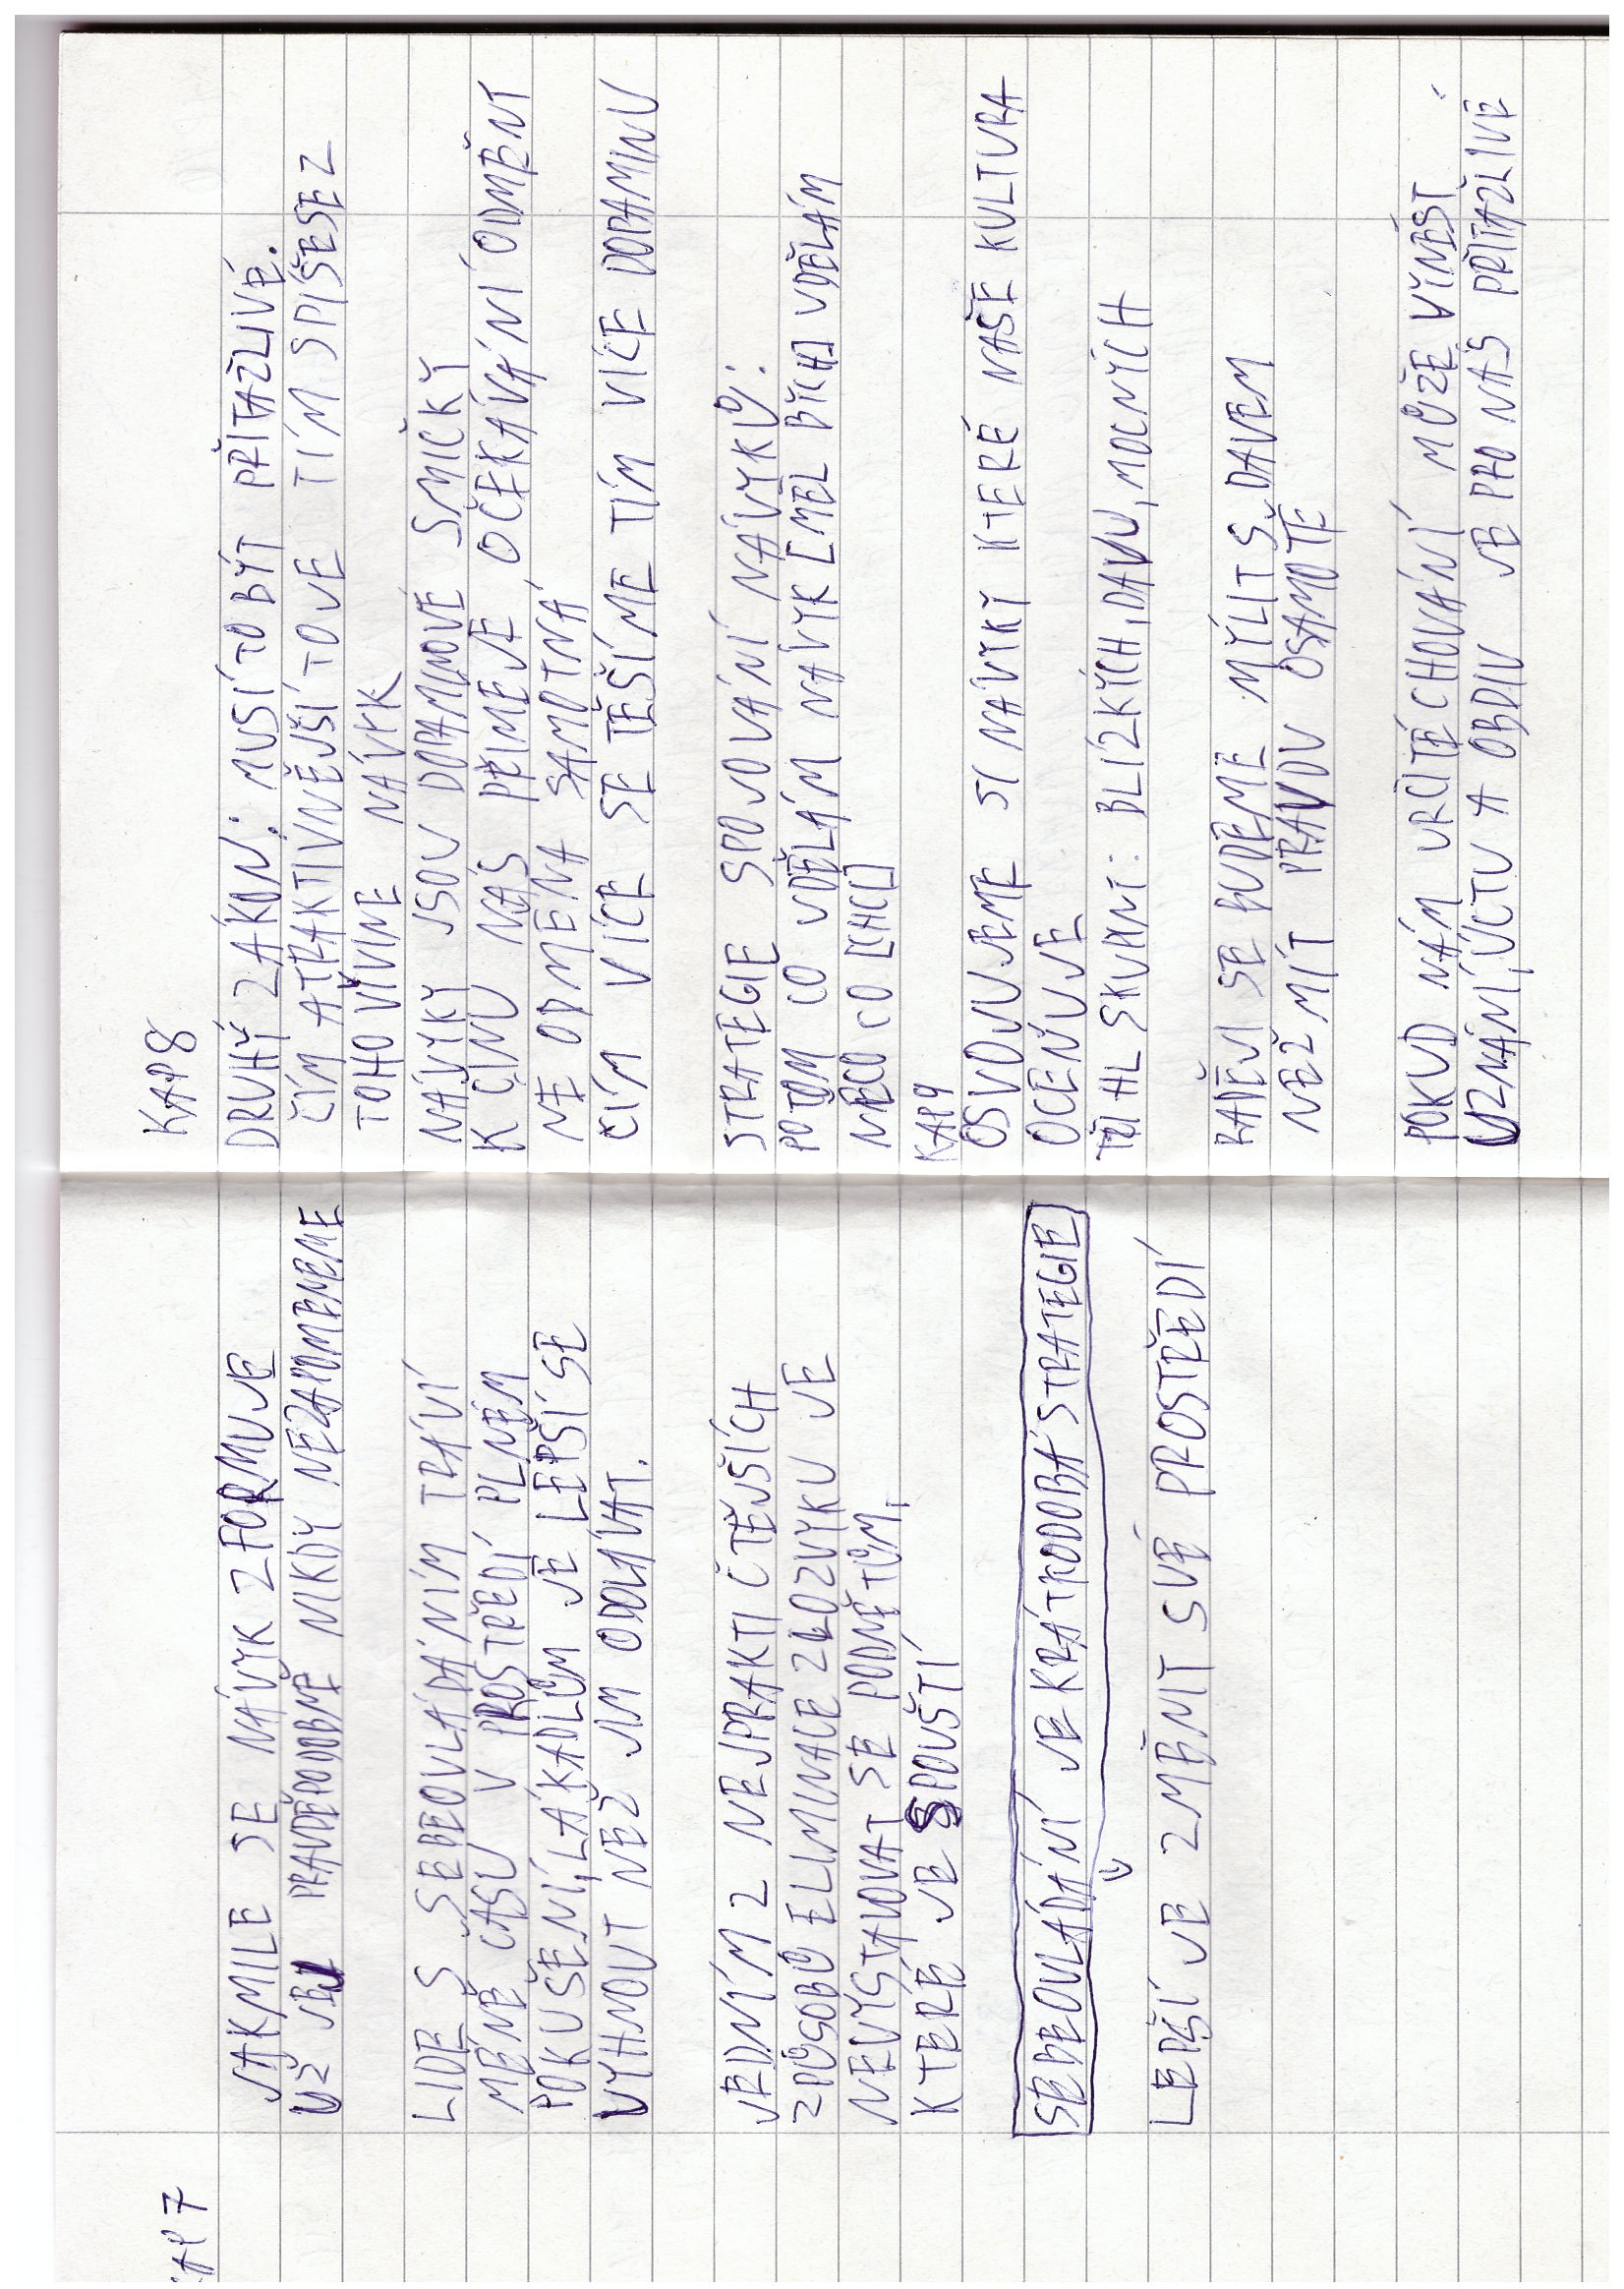 KAP 7
JAKMILE SE NÁVYK ZFORMUJE
UŽ JEJ PRAVDĚPODOBNĚ NIKDY NEZAPOMENEME
LIDE S SEBEOVLÁDÁNÍM TRÁVÍ
MÉNĚ ČASU V PROSTŘEDÍ PLNÉM
POKUŠENÍ, LÁKADLŮM JE LEPŠÍ SE
VYHNOUT NEŽ JIM ODOLÁVAT.
JEDNÍM Z NEJPRAKTIČTĚJŠÍCH
ZPŮSOBŮ ELIMINACE ZLOZVYKU JE
NEVYSTAVOVAT SE PODNĚTŮM,
KTERÉ JE SPOUŠTÍ
SEBEOVLÁDÁNÍ JE KRÁTKODOBÁ STRATEGIE
LEPŠÍ JE ZMĚNIT SVÉ PROSTŘEDÍ
KAP 8
DRUHÝ ZÁKON: MUSÍ TO BÝT PŘITAŽLIVÉ.
ČÍM ATRAKTIVNĚJŠÍ TO JE TÍM SPÍŠE SE Z
TOHO VYVINE NÁVYK
NÁVYKY JSOU DOPAMINOVÉ SMYČKY
K ČINU NÁS PŘIMĚJE OČEKÁVÁNÍ ODMĚNY
NE ODMĚNA SAMOTNÁ
ČÍM VÍCE SE TĚŠÍME TÍM VÍCE DOPAMINU
STRATEGIE SPOJOVÁNÍ NÁVYKŮ:
POTOM CO UDĚLÁM NÁVYK [MĚL BYCH] UDĚLÁM
NĚCO CO [CHCI]
KAP 9
OSVOJUJEME SI NÁVYKY KTERÉ NAŠE KULTURA
OCEŇUJE
TŘI HL SKUPINY: BLÍZKÝCH, DAVU, MOCNÝCH
RADĚJI SE BUDEME MÝLIT S DAVEM
NEŽ MÍT PRAVDU OSAMOTĚ
POKUD NÁM URČITÉ CHOVÁNÍ MŮŽE VYNÉST
UZNÁNÍ, ÚCTU A OBDIV JE PRO NÁS PŘITAŽLIVÉ